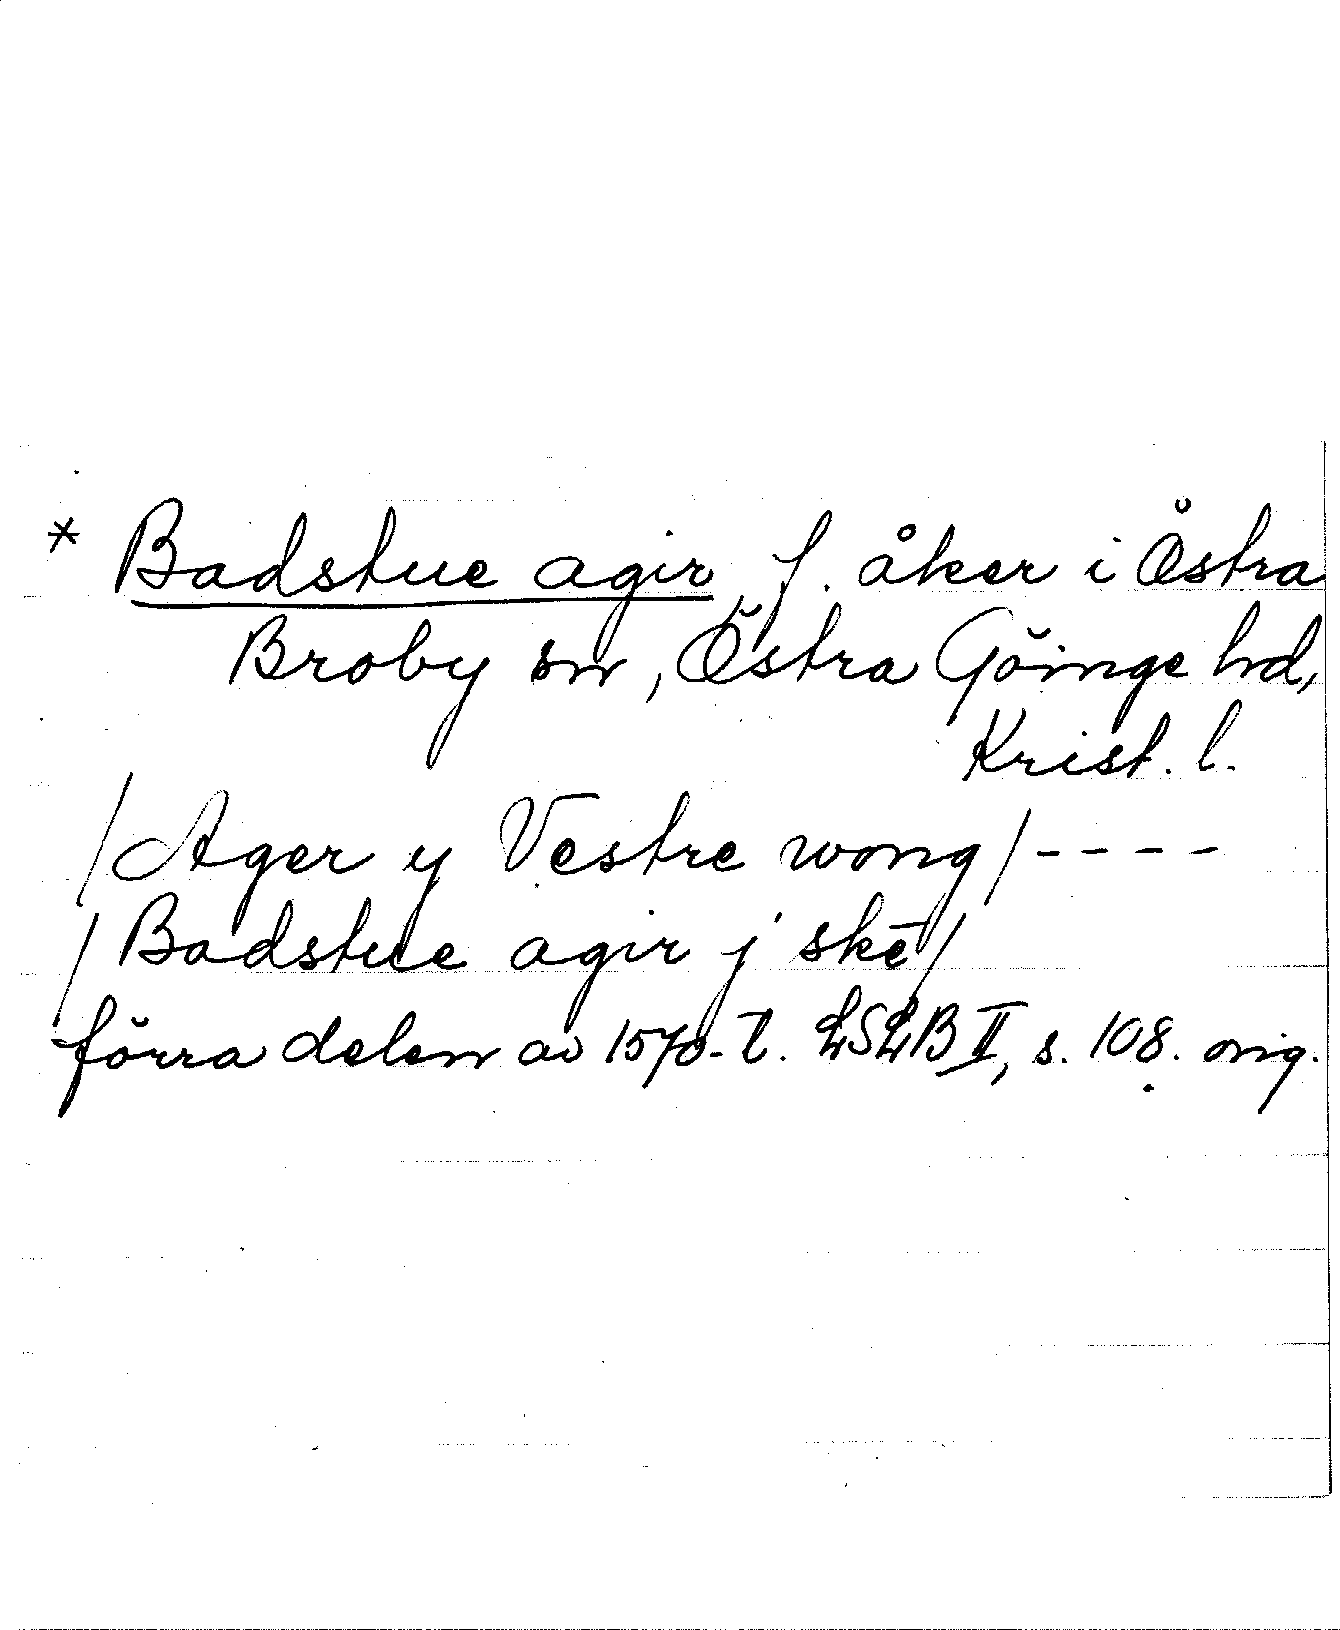 * Badstue agir f. åker i Östra
Broby sn, Östra Göinge hd,
Krist. l.
/Ager y Vestre wong/----
/Badstue agir j skē/
förra delen av 1570-t. LSLB II, s. 108. orig.